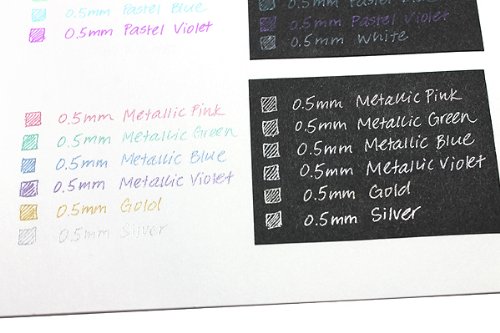 0.5mm Pastel Blue
0.5mm Pastel Violet
0.5mm Metallic Pink
0.5mm Metallic Green
0.5mm Metallic Blue
0.5mm Metallic Violet
0.5mm Gold
0.5mm Silver
Pastel Blue
0.5mm Pastel Violet
0.5mm White
0.5mm Metallic Pink
0.5mm Metallic Green
0.5mm Metallic Blue
0.5mm Metallic Violet
0.5mm Gold
0.5mm Silver